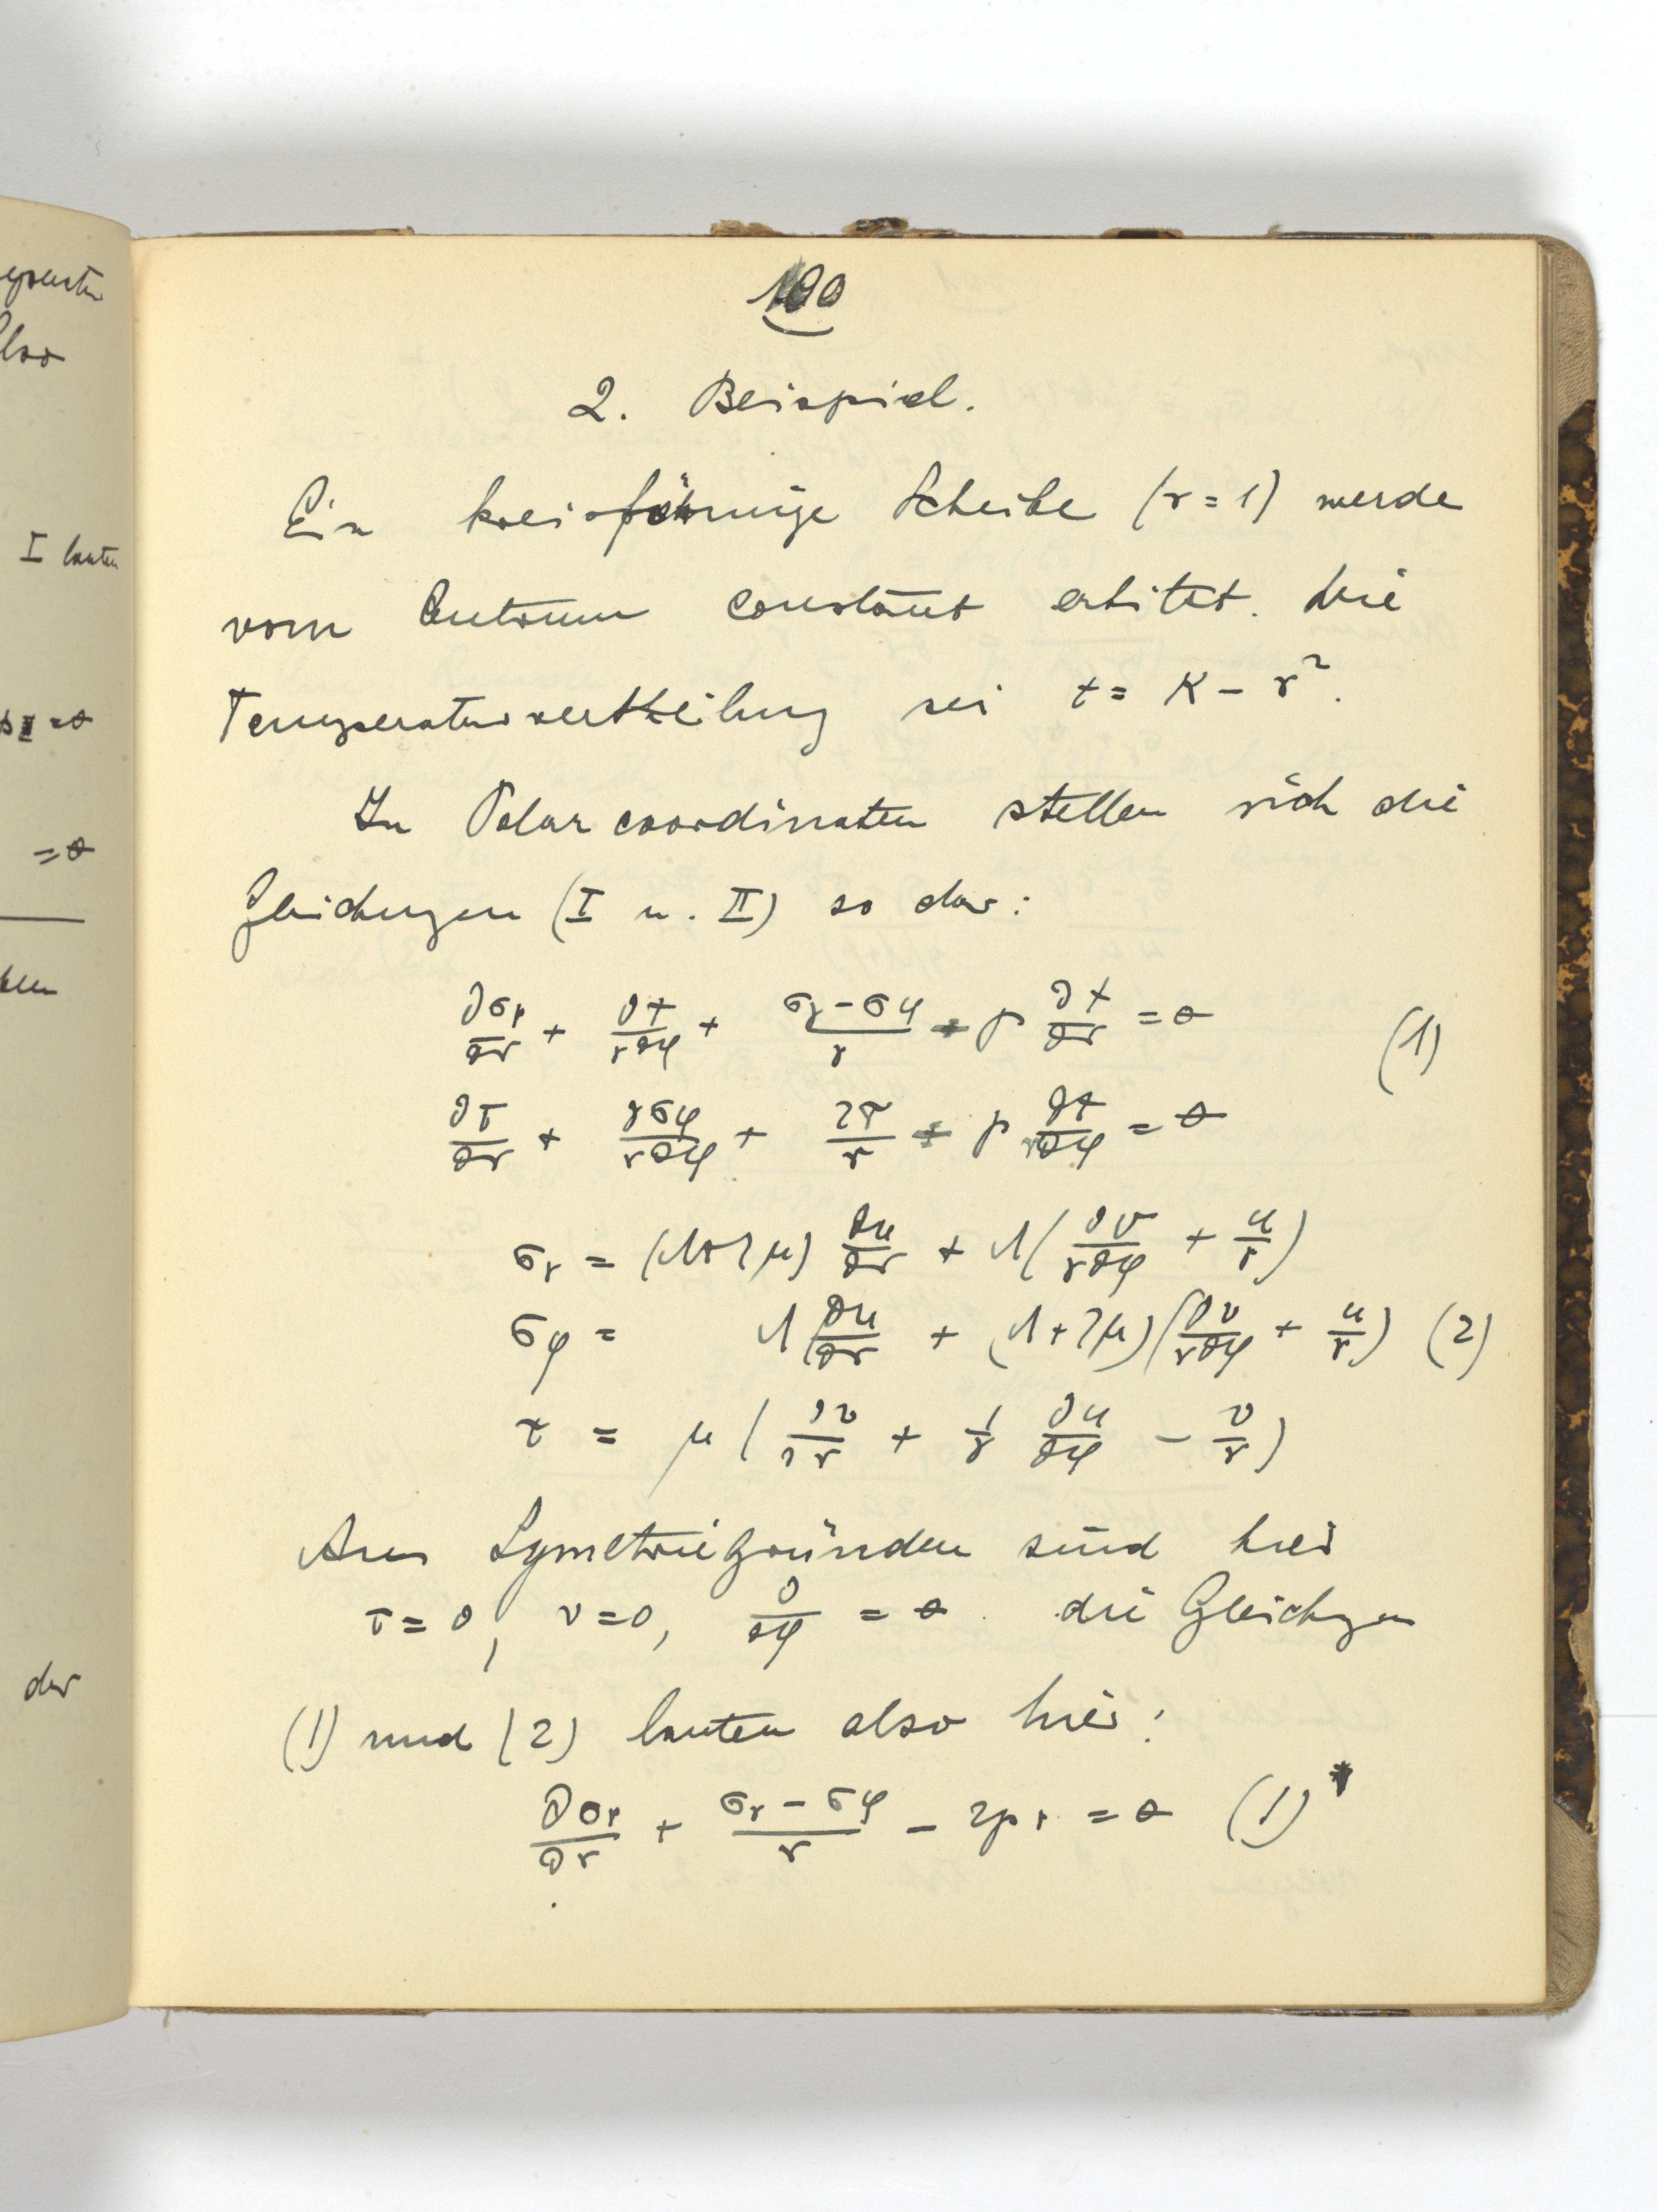 100
2. Beispiel.
Ein kreisförmige Scheibe (r = 1) werde
vom Centrum constant erhitzt. Die
Temperaturvertheilung sei t = K - r².
In Polarcoordinaten stellen sich die
Gleichungen (I u. II) so dar:
∂σr/∂r + ∂τ/r∂φ + (σr - σφ)/r + p ∂t/∂r = 0 (1)
∂τ/∂r + ∂σφ/r∂φ + 2τ/r + p ∂t/r∂φ = 0
σr = (λ+2μ) ∂u/∂r + λ(∂v/r∂φ + u/r)
σφ = λ ∂u/∂r + (λ+2μ)(∂v/r∂φ + u/r) (2)
τ = μ(∂v/∂r + 1/r ∂u/∂φ - v/r)
Aus Symetriegründen sind hier
τ = 0, v = 0, ∂/∂φ = 0. die Gleichgen
(1) und (2) lauten also hier:
∂σr/∂r + (σr - σφ)/r - 2pr = 0 (1)*
I lauten
= 0
der